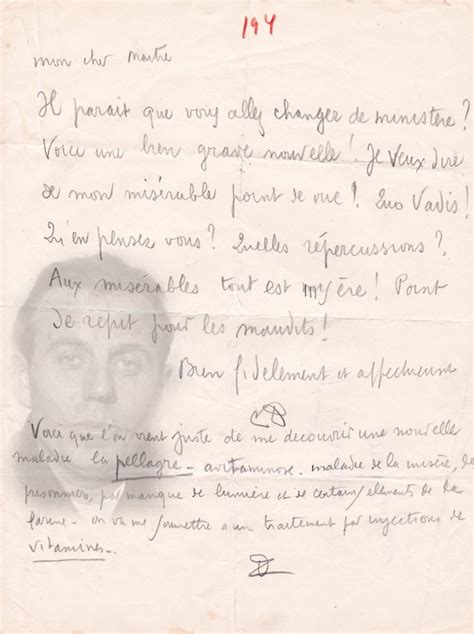 194
mon cher Maitre
Il parait que vous allez changer de ministère?
Voici une bien grave nouvelle! Je veux dire
de mon misérable point de vue! Quo Vadis!
Qu'en pensez vous? Quelles répercussions?
Aux misérables tout est mystère! Point
de répit pour les maudits!
Bien fidelement et affectueuse
Voici que l'on vient juste de me decouvrir une nouvelle
maladie la pellagre - avitaminose - maladie de la misère, des
prisonniers, par manque de lumière et de certains elements de la
farine - on va me soumettre a un traitement par injections de
vitamines -